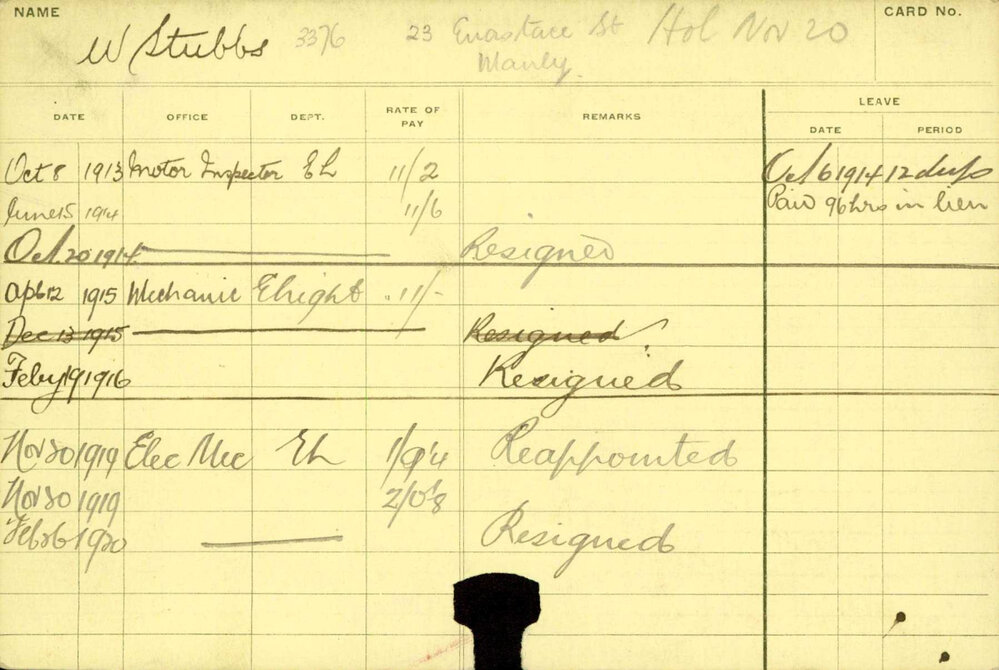 NAME
W Stubbs 3376 23 St Hol Nov 20
Manly
CARD No.
DATE OFFICE DEPT. RATE OF PAY REMARKS LEAVE
DATE PERIOD
Oct 8 1913 Motor Inspector EL 11/2 Oct 6 1914 12 days
June 15 1914 11/6 Paid 96 hrs in lieu
Oct. 20 1914 Resigned
Apl 12 1915 Mechanic Elight 11/-
Dec 13 1915 Resigned
Feby 19 1916 Resigned
Nov 20 1919 Elec Mec EL 1/9'4 Reappointed
Nov 30 1919 2/0'8
Feb 26 1920 Resigned